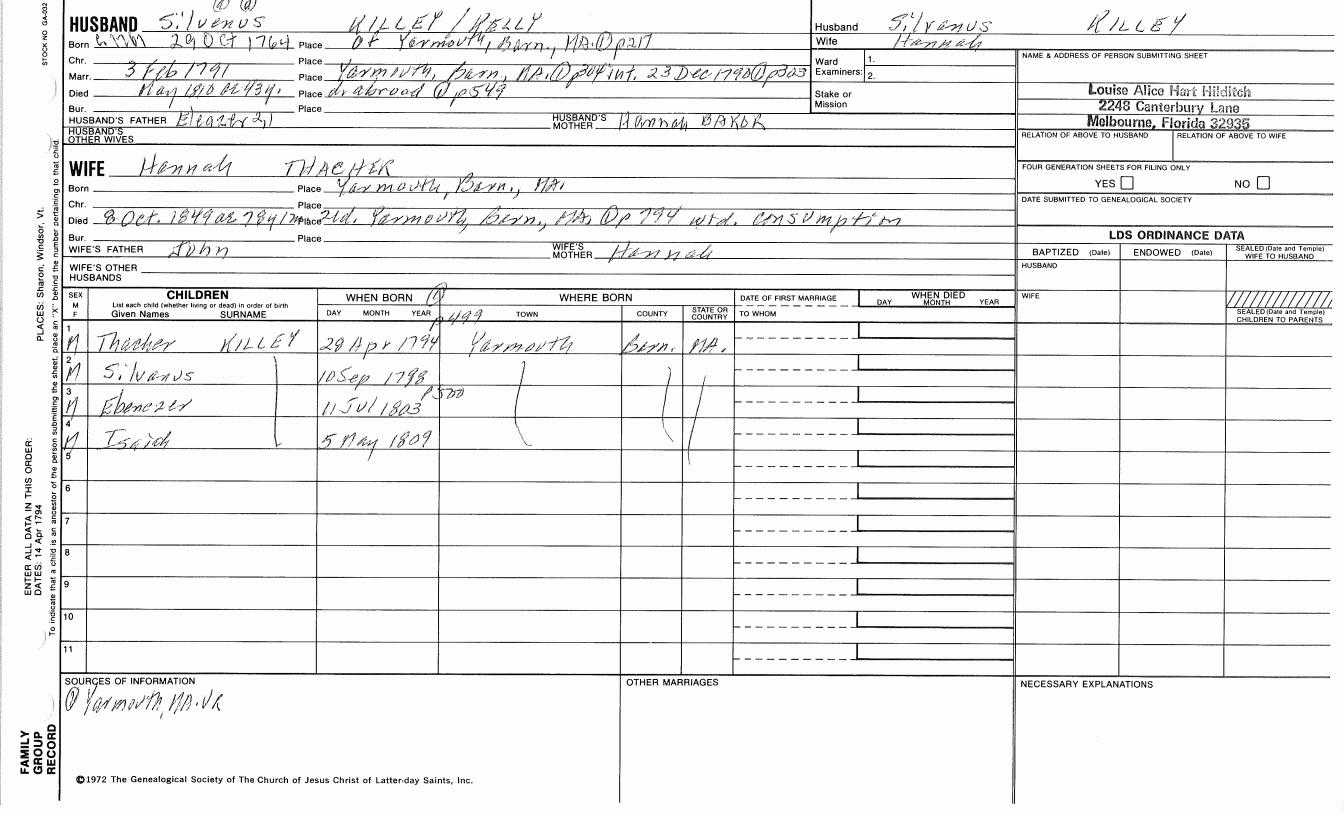 STOCK NO. GA-032
HUSBAND Silvenus KILLEY / KELLY
Born 29 Oct 1764 Place of Yarmouth, Barn., MA. ① p217
Chr. Place
Marr. 3 Feb 1791 Place Yarmouth, Barn., MA. ① p304 int. 23 Dec 1790 ① p303
Died May 1810 ae 43y. Place d. abroad ① p549
Bur. Place
HUSBAND'S FATHER Eleazer HUSBAND'S MOTHER Hannah BAKER
HUSBAND'S OTHER WIVES
WIFE Hannah THACHER
Born Place Yarmouth, Barn., MA.
Chr. Place
Died 8 Oct. 1849 ae 78y 21d. Place Yarmouth, Barn., MA. ① p 794 wid. consumption
Bur. Place
WIFE'S FATHER John WIFE'S MOTHER Hannah
WIFE'S OTHER HUSBANDS
Husband Silvanus KILLEY
Wife Hannah
Ward Examiners: 1. 2.
Stake or Mission
NAME & ADDRESS OF PERSON SUBMITTING SHEET
Louise Alice Hart Hilditch
2248 Canterbury Lane
Melbourne, Florida 32935
RELATION OF ABOVE TO HUSBAND RELATION OF ABOVE TO WIFE
FOUR GENERATION SHEETS FOR FILING ONLY
YES NO
DATE SUBMITTED TO GENEALOGICAL SOCIETY
LDS ORDINANCE DATA
BAPTIZED (Date) ENDOWED (Date) SEALED (Date and Temple) WIFE TO HUSBAND
HUSBAND
WIFE
SEALED (Date and Temple) CHILDREN TO PARENTS
SEX M F CHILDREN WHEN BORN ① WHERE BORN DATE OF FIRST MARRIAGE WHEN DIED
List each child (whether living or dead) in order of birth
Given Names SURNAME DAY MONTH YEAR p499 TOWN COUNTY STATE OR COUNTRY TO WHOM DAY MONTH YEAR
1 M Thacher KILLEY 28 Apr 1794 Yarmouth Barn. MA.
2 M Silvanus 10 Sep 1798
3 M Ebenezer 11 Jul 1803 p500
4 M Isaiah 5 May 1809
5
6
7
8
9
10
11
SOURCES OF INFORMATION
① Yarmouth, MA. VR
OTHER MARRIAGES
NECESSARY EXPLANATIONS
©1972 The Genealogical Society of The Church of Jesus Christ of Latter-day Saints, Inc.
FAMILY GROUP RECORD
ENTER ALL DATA IN THIS ORDER:
DATES: 14 Apr 1794
PLACES: Sharon, Windsor, Vt.
To indicate that a child is an ancestor of the person submitting the sheet, place an "X" behind the number pertaining to that child.